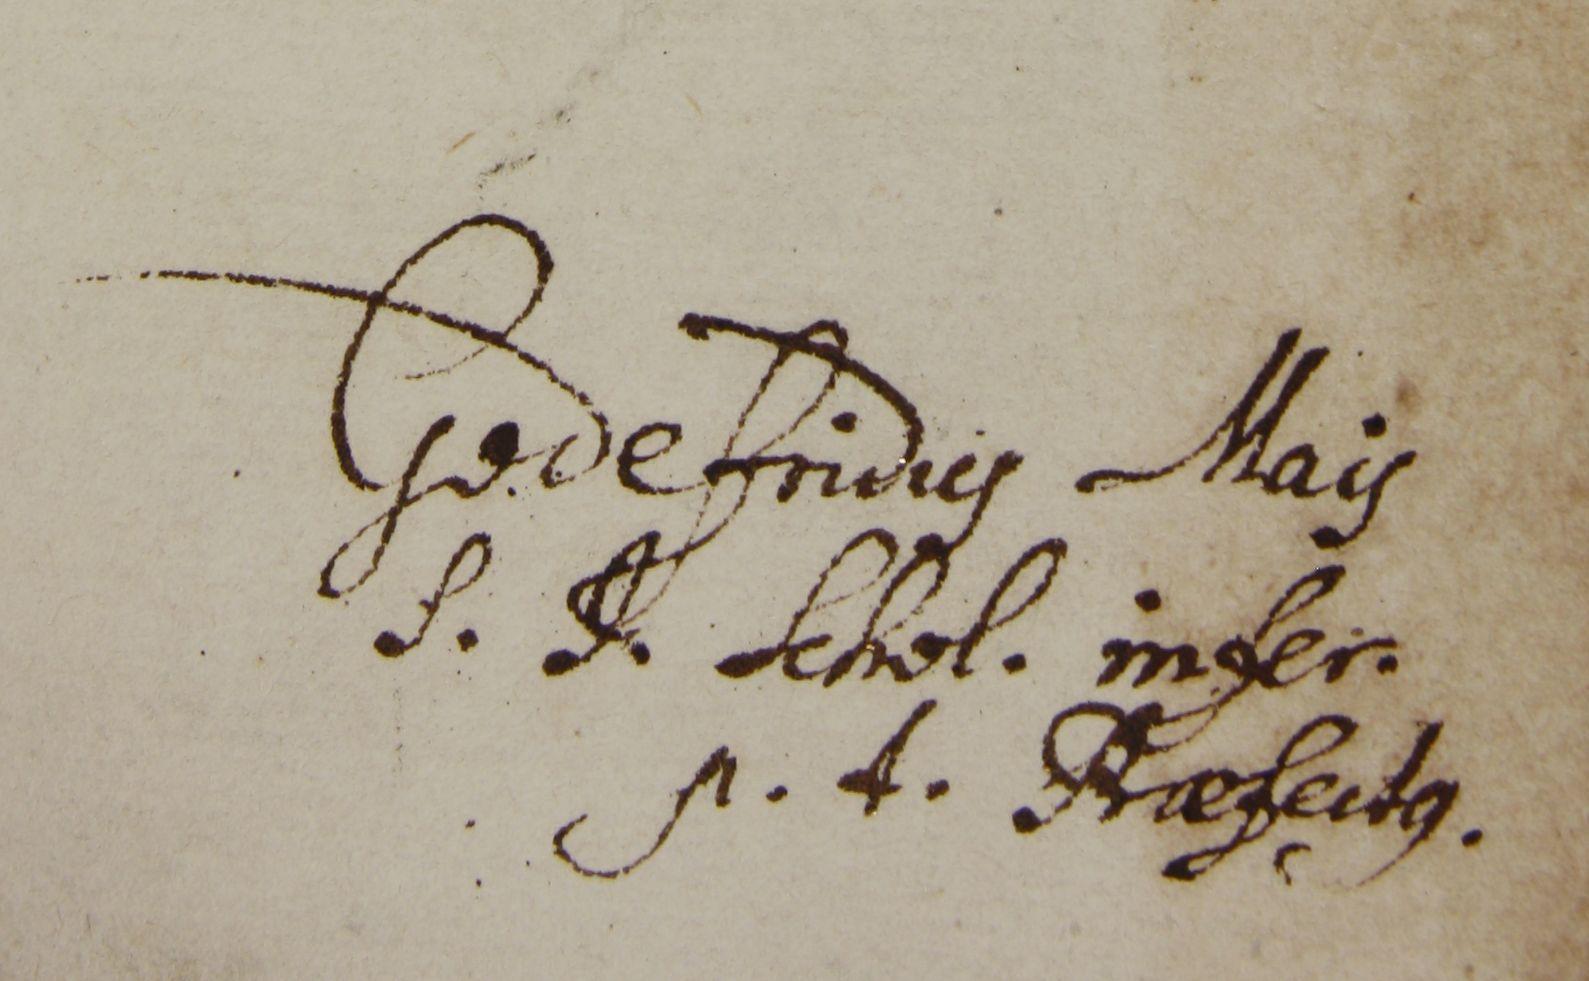 Godefridus Mais
S. J. Schol. infer.
p. t. Præfectus.